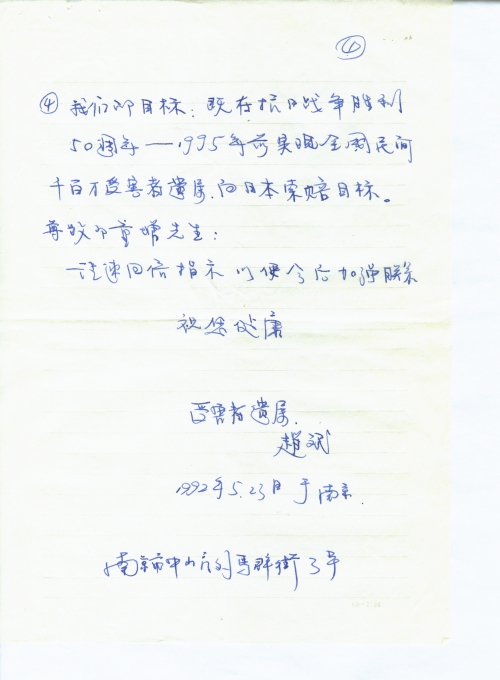 ④
④ 我们的目标：既在抗日战争胜利
50周年——1995年前实现全国民间
千百万受害者遗属，向日本索赔目标。
尊敬的童增先生：
请速回信指示以便今后加强联系
祝您健康
受害者遗属，
赵斌
1992年5.23日于南京
南京市中山
3号